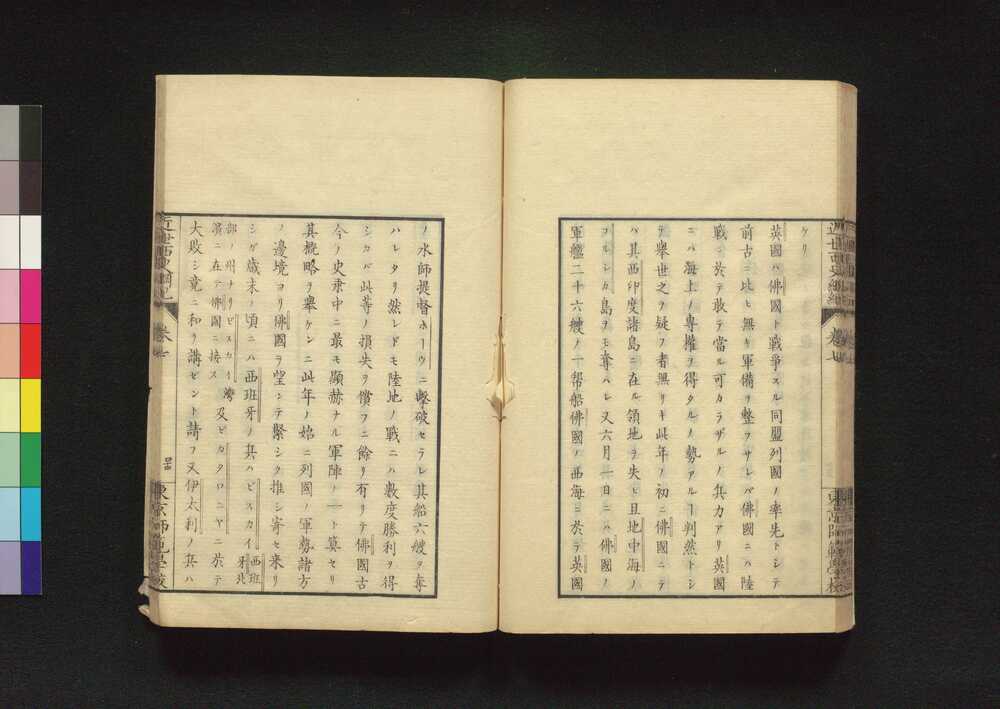 ケリ
英國ハ佛國ト戰爭スル同盟列國ノ率先トシテ
前古ニ比ヒ無キ軍備ヲ整フサレバ佛國ニハ陸
戰ニ於テ敢テ當ル可カラザルノ兵力アリ英國
ニハ海上ノ專權ヲ得タルノ勢アルヿ判然トシ
テ舉世之ヲ疑フ者無リキ此年ノ初ニ佛國ニテ
ハ其西印度諸島ニ在ル領地ヲ失ヒ且地中海ノ
コルシカ島ヲモ奪ハレ又六月一日ニハ佛國ノ
軍艦二十六艘ノ一帮船佛國ノ西海ニ於テ英國
ノ水師提督ホーウニ擊破セラレ其船六艘ヲ奪
ハレタリ然レドモ陸地ノ戰ニハ數度勝利ヲ得
シカバ此等ノ損失ヲ償フニ餘リ有リテ佛國古
今ノ史乘中ニ最モ顯赫ナル軍陣ノ一ト算セリ
其概略ヲ舉ケンニ此年ノ始ニ列國ノ軍勢諸方
ノ邊境ヨリ佛國ヲ望ンテ緊シク推シ寄セ来リ
シガ歲末ノ頃ニハ西班牙ノ兵ハビスカイ 西班牙北
部ノ州ナリビスカイ灣濱ニ在テ佛國ニ接ス 及ビカタロニヤニ於テ
大敗シ竟ニ和ヲ講ゼント請フ又伊太利ノ兵ハ
近世西史綱紀
卷七
東京師範學校